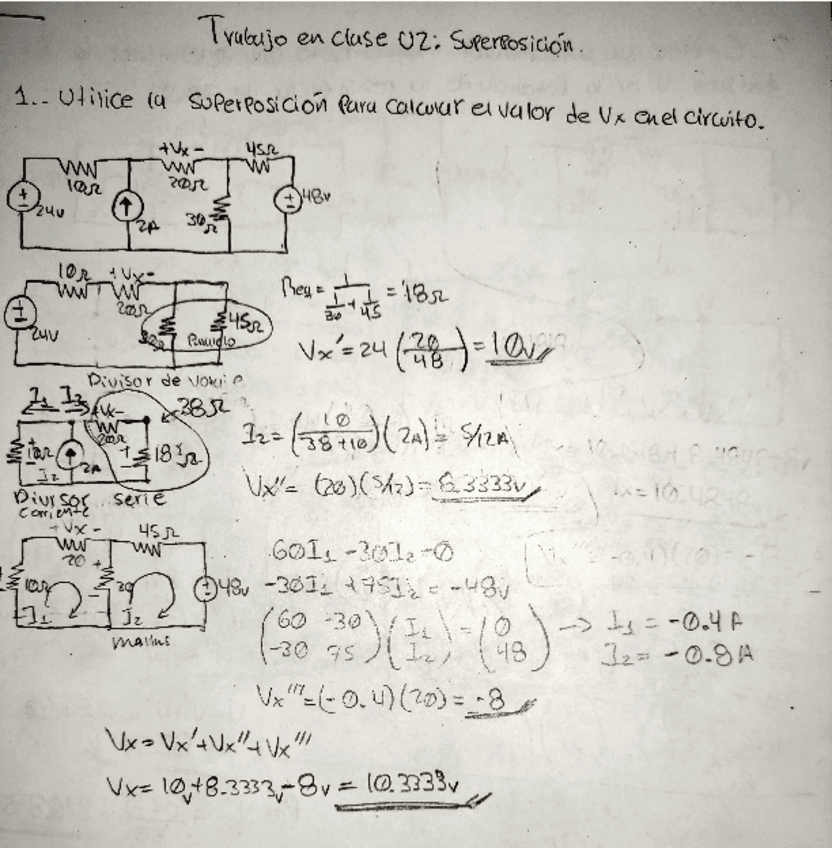 Trabajo en clase U2: Superposición.
1.. Utilice la superposición para calcular el valor de Vx en el circuito.
+Vx- 45Ω
10Ω 20Ω
24v 2A 30Ω 48v
10Ω +Vx-
20Ω 45Ω
24V Paralelo
Req = 1/(1/30 + 1/45) = 18Ω
Vx' = 24 (20/48) = 10v
Divisor de voltaje
I1 I2 +Vx- 38Ω
20Ω
10Ω 2A 18Ω
Divisor corriente serie
I2 = (10/(38+10))(2A) = 5/12A
Vx'' = (20)(5/12) = 8.3333v
+Vx- 45Ω
20
10Ω 30 48v
I1 I2
mallas
60I1 - 30I2 = 0
-30I1 + 75I2 = -48v
(60 -30) (I1) = (0) → I1 = -0.4A
(-30 75) (I2) (48) I2 = -0.8A
Vx''' = (-0.4)(20) = -8
Vx = Vx' + Vx'' + Vx'''
Vx = 10v + 8.3333v - 8v = 10.3333v